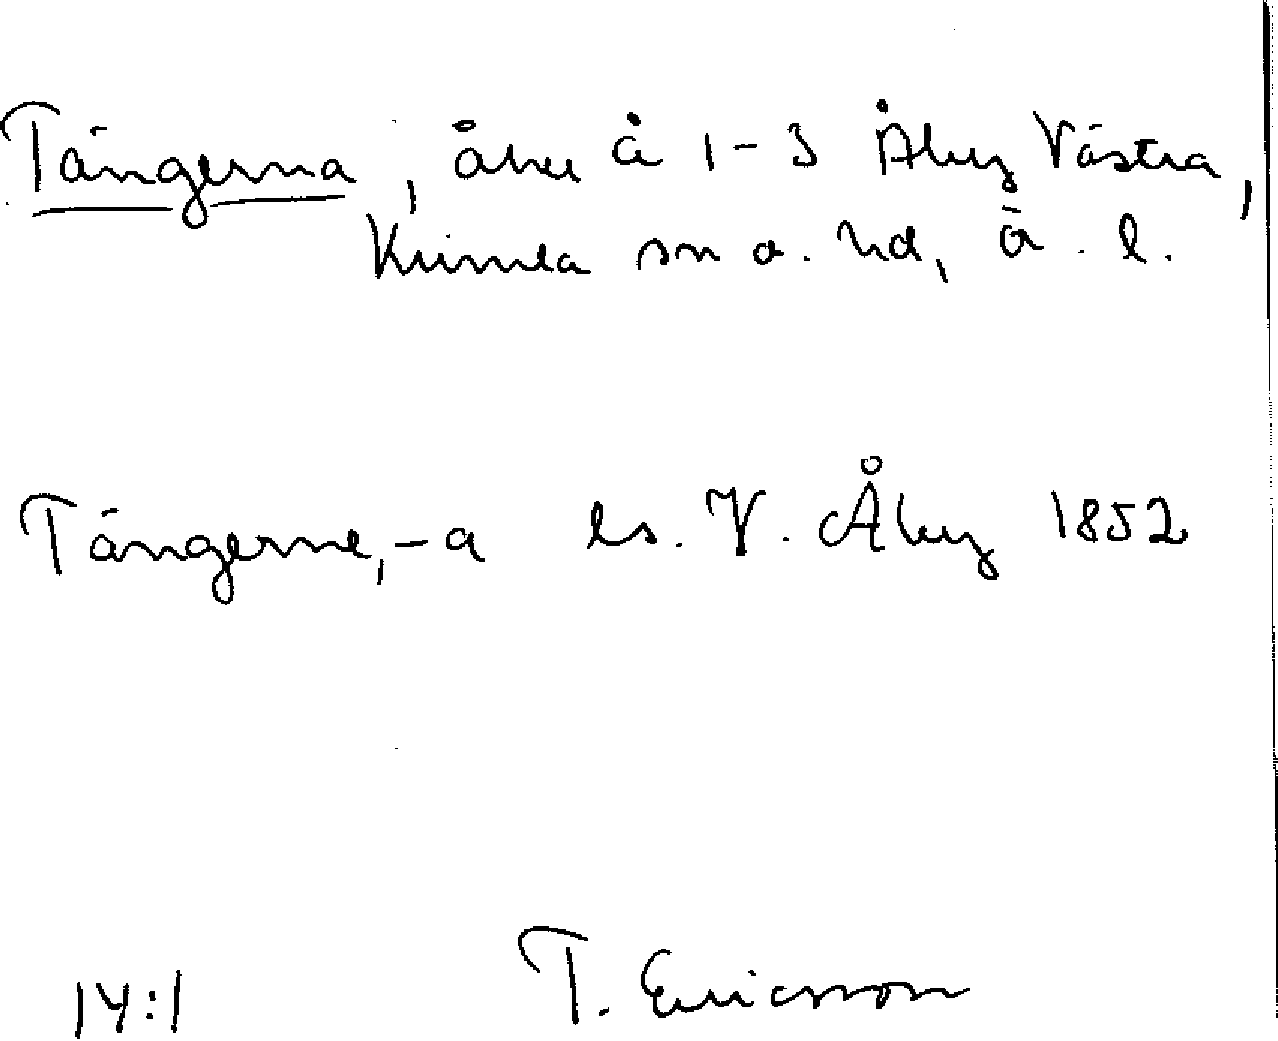 Tängerna, åker å 1-3 Åby Västra,
Kumla sn o. hd, ä. l.
Tängerne, -a ls. V. Åby 1852
14:1 T. Ericsson